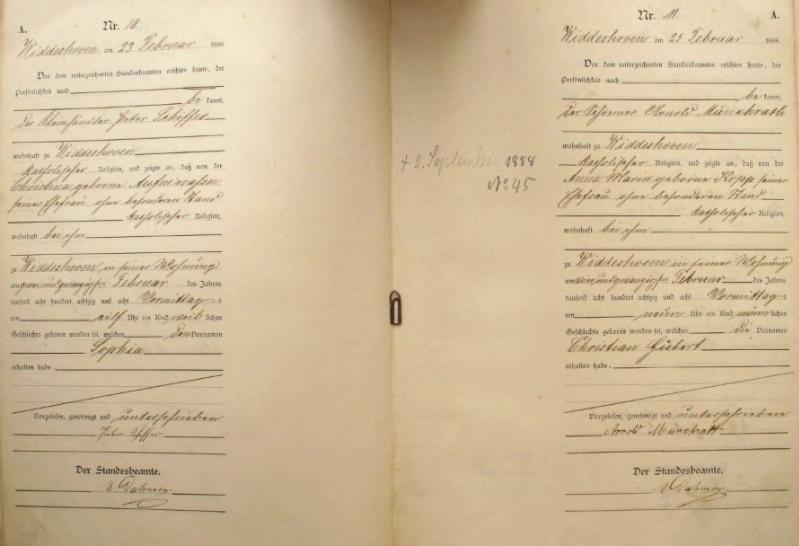 A.
Nr. 10.
Widdeshoven am 23 Februar 1888.
Vor dem unterzeichneten Standesbeamten erschien heute, der
Persönlichkeit nach
be kannt,
der Kleinhändler Peter
wohnhaft zu Widdeshoven
katholischer Religion, und zeigte an, daß von der
Christina geborne
seiner Ehefrau ohne besonderen Stand
katholischer Religion,
wohnhaft bei ihm
zu Widdeshoven in seiner Wohnung
am Februar des Jahres
tausend acht hundert achtzig und acht Vormittag s
um eilf Uhr ein Kind weib lichen
Geschlechts geboren worden sei, welches den Vornamen
Sophia
erhalten habe.
Vorgelesen, genehmigt und unterschrieben
Peter
Der Standesbeamte.
Dahmen
+ 2. September 1888
No 45
Nr. 11.
A.
Widdeshoven am 25 Februar 1888.
Vor dem unterzeichneten Standesbeamten erschien heute, der
Persönlichkeit nach
be kannt,
Der Arnold Münchrath
wohnhaft zu Widdeshoven
katholischer Religion, und zeigte an, daß von der
Anna Maria geborne seiner
Ehefrau ohne besonderen Stand
katholischer Religion,
wohnhaft bei ihm
zu Widdeshoven in seiner Wohnung
am Februar des Jahres
tausend acht hundert achtzig und acht Vormittag s
um neun Uhr ein Kind männ lichen
Geschlechts geboren worden sei, welches die Vornamen
Christian Hubert
erhalten habe.
Vorgelesen, genehmigt und unterschrieben
Arnold Münchrath
Der Standesbeamte.
Dahmen